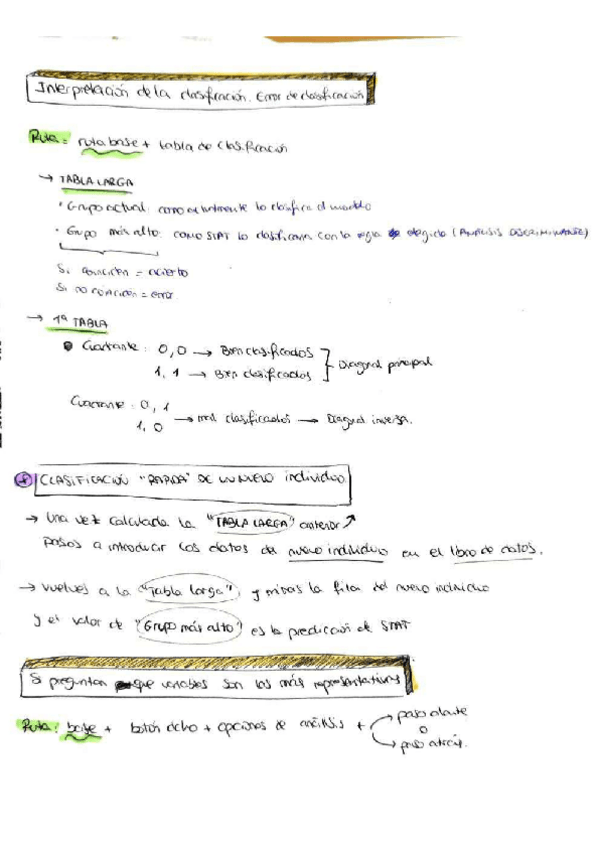 Interpretación de la clasificación. Error de clasificación
Ruta: ruta base + tabla de clasificación
→ TABLA LARGA
• Grupo actual: como actualmente lo clasifica el modelo
• Grupo más alto: como STAT lo clasificaria con la regla elegida (ANÁLISIS DISCRIMINANTE)
Si coinciden = acierto
Si no coinciden = error
→ 1ª TABLA
Cuadrante: 0,0 → Bien clasificados
1,1 → Bien clasificados
Diagonal principal
Cuadrante: 0,1
1,0
→ mal clasificados → Diagonal inversa.
CLASIFICACIÓN "RÁPIDA" DE UN NUEVO individuo
→ Una vez calculada la "TABLA LARGA" anterior ↗
pasas a introducir los datos del nuevo individuo en el libro de datos.
→ vuelves a la "Tabla larga", y miras la fila del nuevo individuo
y el valor de "Grupo más alto" es la predicción de STAT
Si preguntan que variables son las más representativas
Ruta: base + botón dcho + opciones de análisis +
paso alante
o
paso atrás.